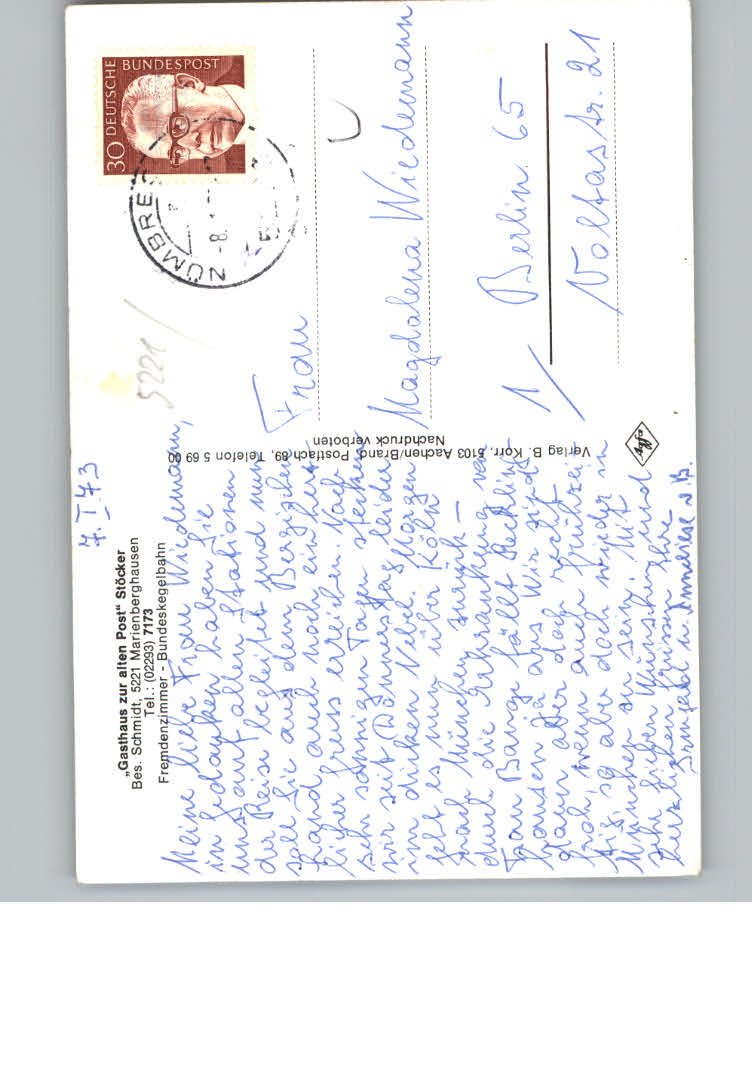 „Gasthaus zur alten Post“ Stöcker
Bes. Schmidt, 5221 Marienberghausen
Tel.: (02293) 7173
Fremdenzimmer - Bundeskegelbahn
7.I.73
Meine liebe Frau Wiedemann,
in Gedanken haben Sie
uns auf allen Stationen
der Reise begleitet und nun
soll Sie aus dem Bergischen
Land auch noch ein herz-
licher Gruss erreichen. Nach
sehr sonnigen Tagen stecken
wir seit Donnerstag leider
im dicken Nebel. Morgen
geht es nun über Köln
nach München zurück –
durch die Erkrankung von
Frau Bange fällt Reckling-
hausen ja aus. Wir sind
dann aber doch recht
froh, wenn auch frühzei-
tig, so aber doch wieder in
München zu sein. Mit
sehr lieben Wünschen und
herzlichen Grüssen Ihre
Irmgard u. Annerose
Verlag B. Korr, 5103 Aachen/Brand, Postfach 89, Telefon 5 69 00
Nachdruck verboten
Agfa
5221
DEUTSCHE BUNDESPOST
30
NÜMBRE
-8.
Frau
Magdalena Wiedemann
1 Berlin 65
Voltastr. 21